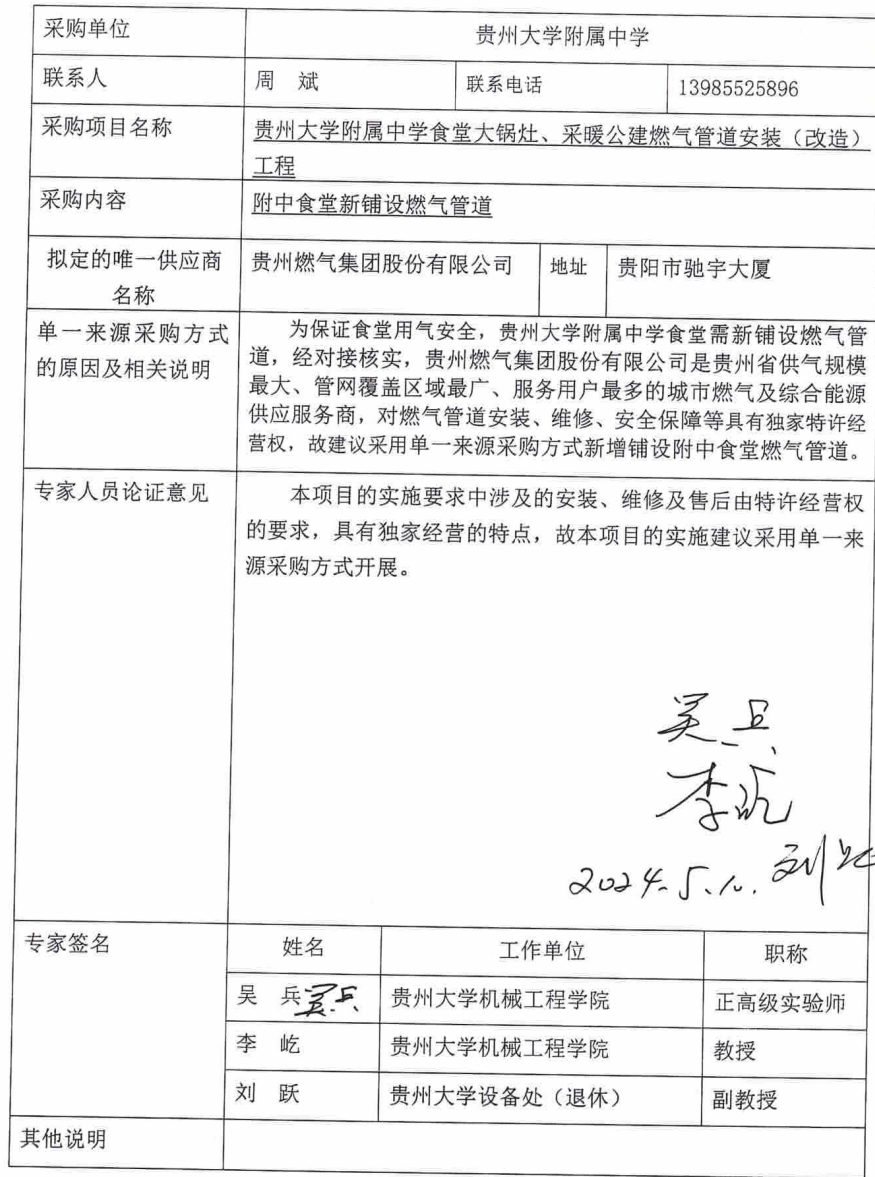 采购单位 贵州大学附属中学
联系人 周 斌 联系电话 13985525896
采购项目名称 贵州大学附属中学食堂大锅灶、采暖公建燃气管道安装（改造）
工程
采购内容 附中食堂新铺设燃气管道
拟定的唯一供应商
名称
贵州燃气集团股份有限公司 地址 贵阳市驰宇大厦
单一来源采购方式
的原因及相关说明
为保证食堂用气安全，贵州大学附属中学食堂需新铺设燃气管
道，经对接核实，贵州燃气集团股份有限公司是贵州省供气规模
最大、管网覆盖区域最广、服务用户最多的城市燃气及综合能源
供应服务商，对燃气管道安装、维修、安全保障等具有独家特许经
营权，故建议采用单一来源采购方式新增铺设附中食堂燃气管道。
专家人员论证意见
本项目的实施要求中涉及的安装、维修及售后由特许经营权
的要求，具有独家经营的特点，故本项目的实施建议采用单一来
源采购方式开展。
吴兵
李屹
2024.5.10. 刘跃
专家签名 姓名 工作单位 职称
吴 兵 吴兵 贵州大学机械工程学院 正高级实验师
李 屹 贵州大学机械工程学院 教授
刘 跃 贵州大学设备处（退休） 副教授
其他说明